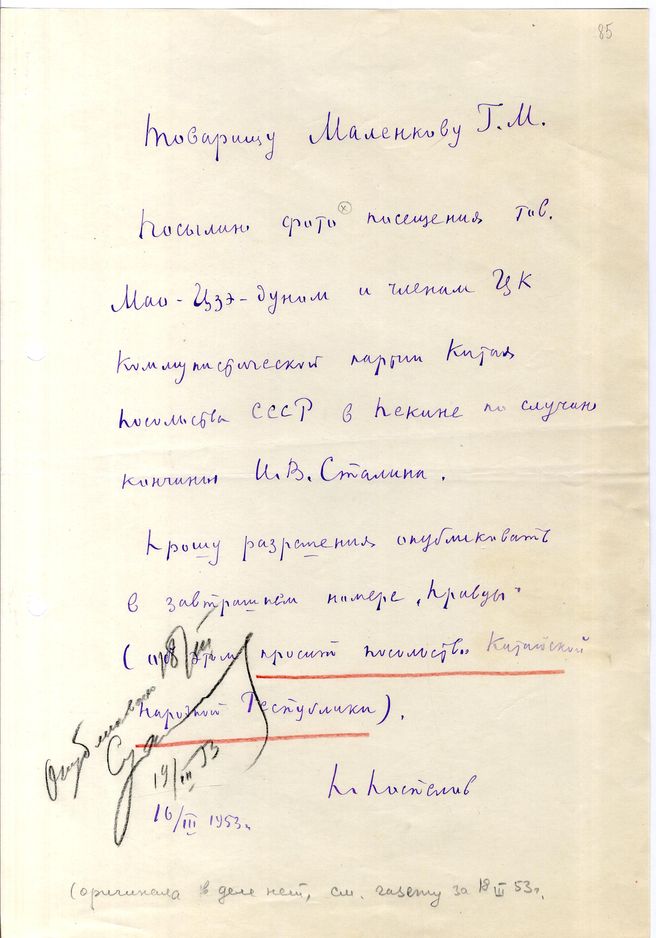 85
Товарищу Маленкову Г.М.
Посылаю фото (x) посещения тов.
Мао-Цзэ-дуном и членами ЦК
Коммунистической партии Китая
посольства СССР в Пекине по случаю
кончины И.В. Сталина.
Прошу разрешения опубликовать
в завтрашнем номере „Правды"
(об этом просит посольство Китайской
Народной Республики).
П. Поспелов
16/III 1953 г.
Опубликовано 18/III
Суханов
19/III 53
(оригинала в деле нет, см. газету за 18 III 53 г.